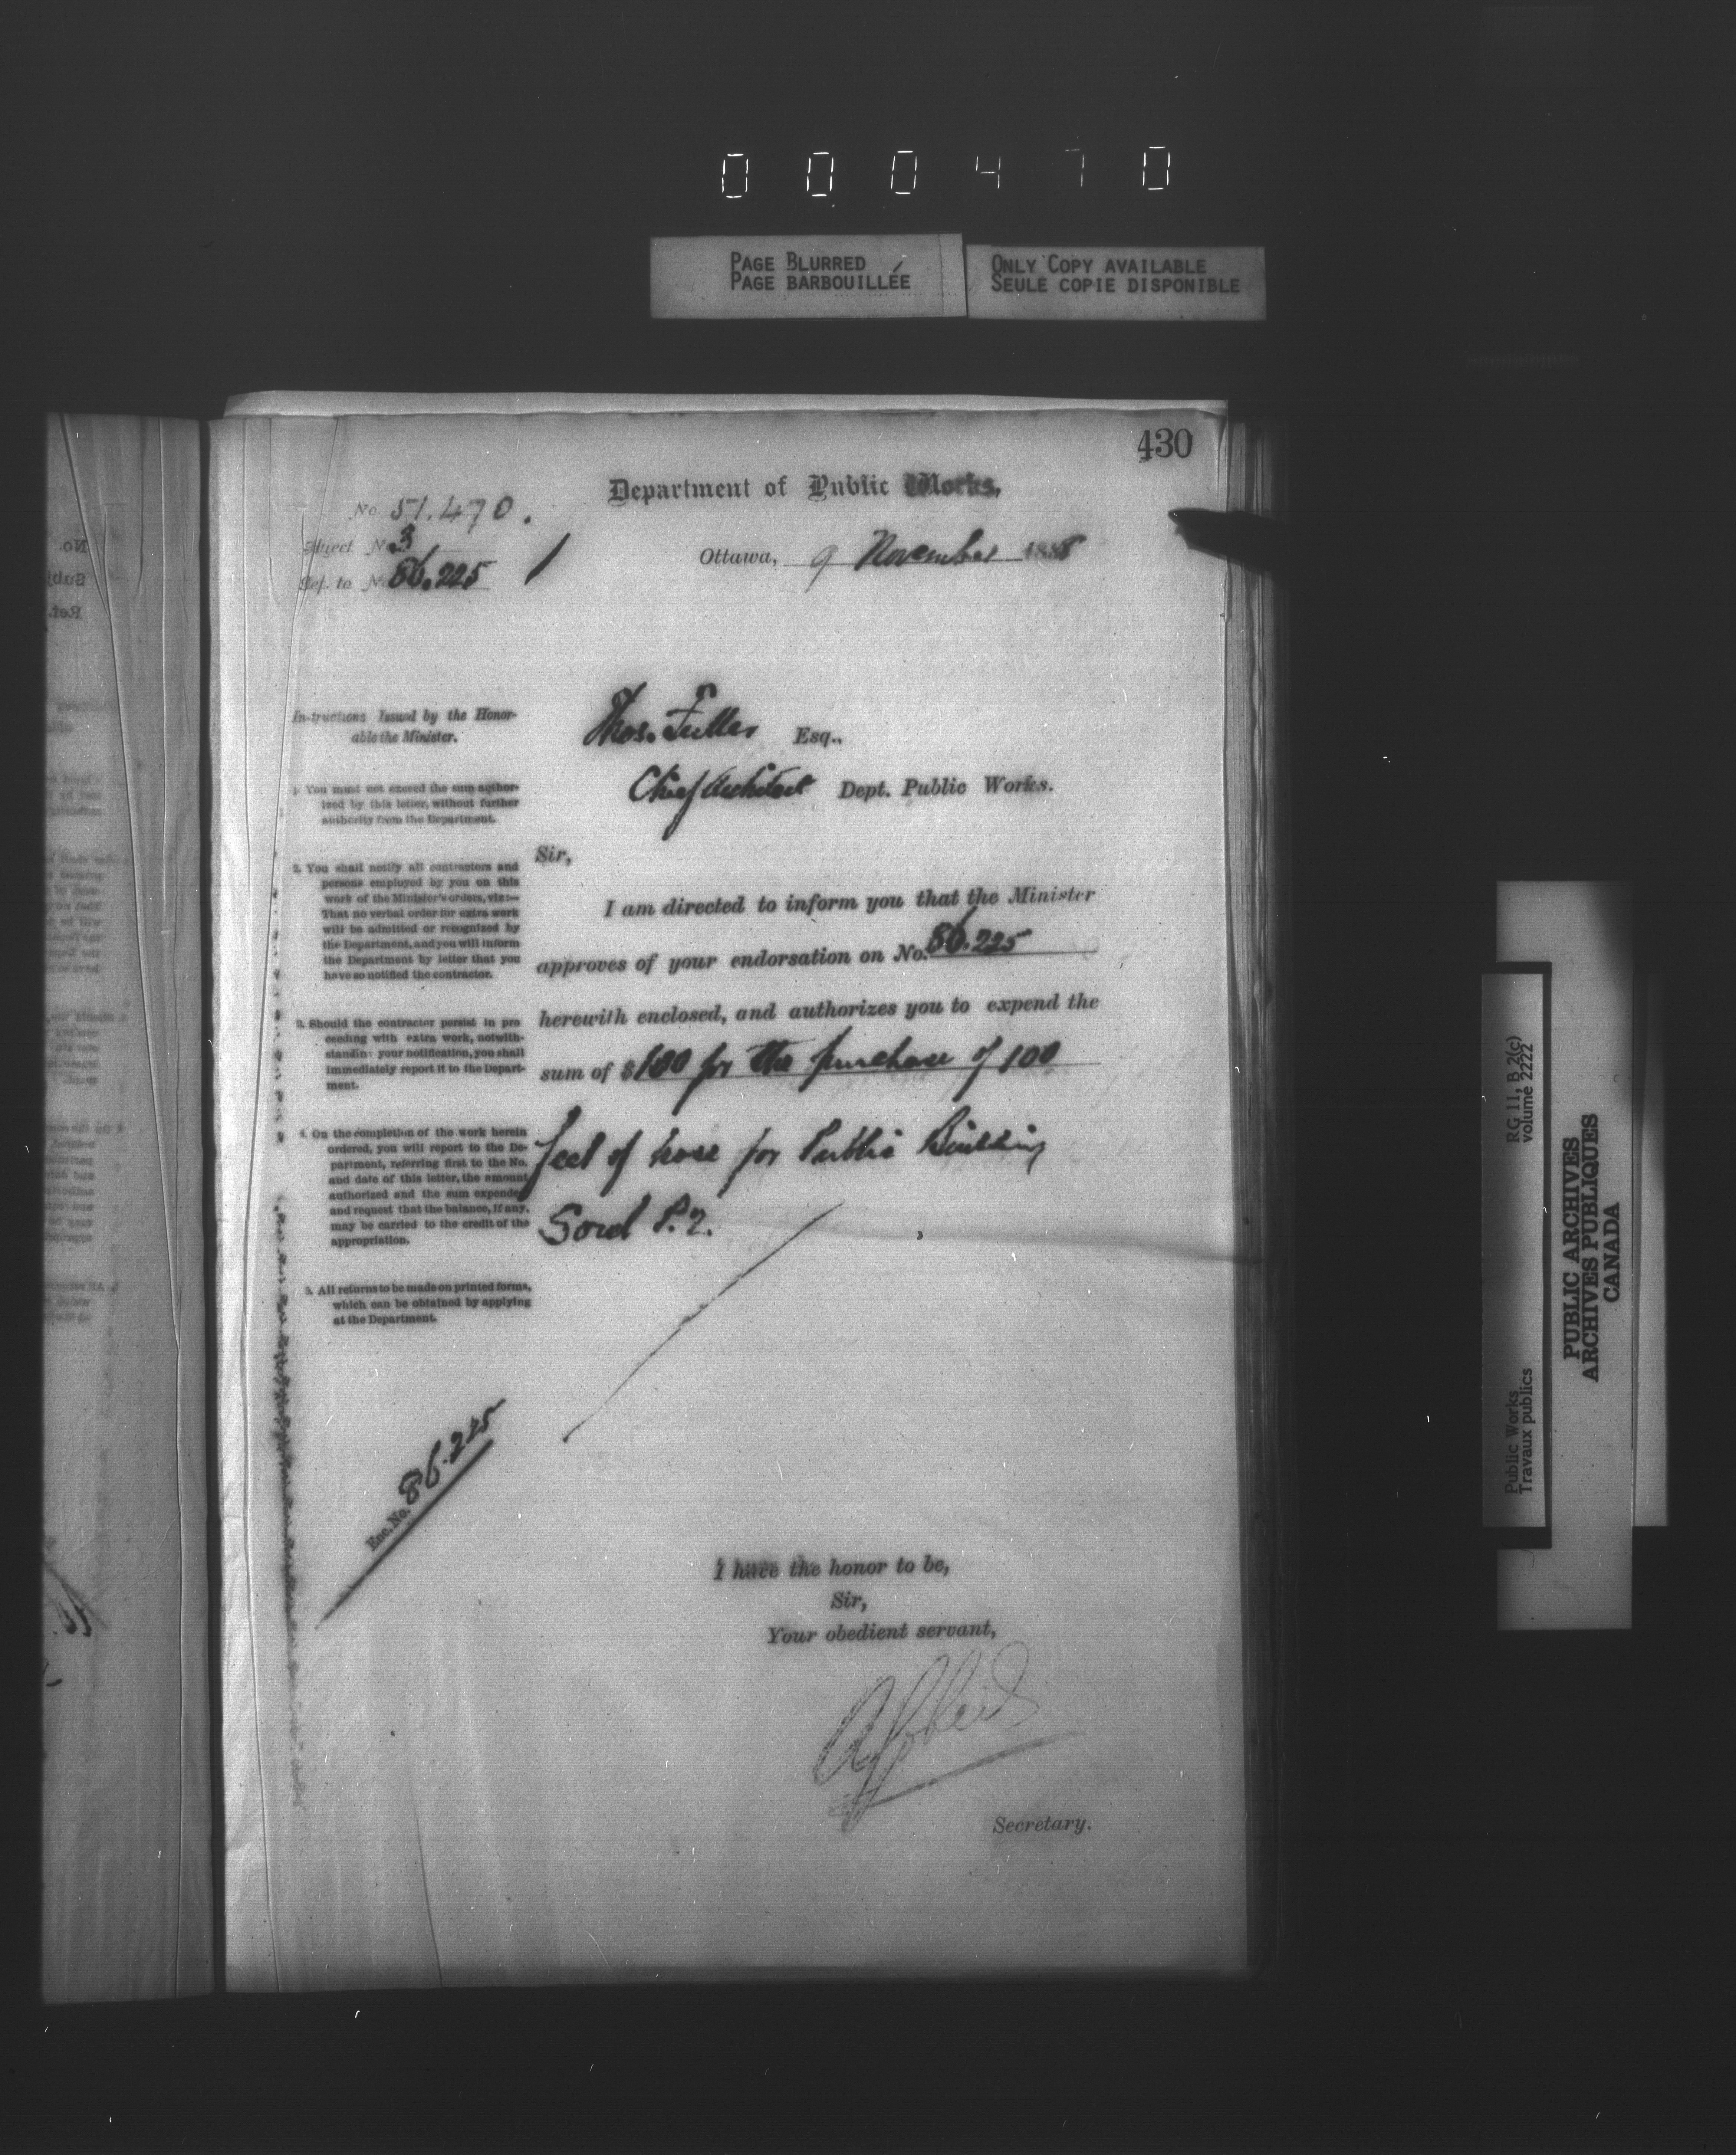 000470
PAGE BLURRED
PAGE BARBOUILLÉE
ONLY COPY AVAILABLE
SEULE COPIE DISPONIBLE
430
Department of Public Works,
No 51.470.
Subject No. 3
Ref. to No. 86.225
Ottawa, 9 November 1888
Instructions Issued by the Honor-
able the Minister.
1. You must not exceed the sum author-
ized by this letter, without further
authority from the Department.
2. You shall notify all contractors and
persons employed by you on this
work of the Minister's orders, viz:—
That no verbal order for extra work
will be admitted or recognized by
the Department, and you will inform
the Department by letter that you
have so notified the contractor.
3. Should the contractor persist in pro
ceeding with extra work, notwith-
standing your notification, you shall
immediately report it to the Depart-
ment.
4. On the completion of the work herein
ordered, you will report to the De-
partment, referring first to the No.
and date of this letter, the amount
authorized and the sum expended
and request that the balance, if any,
may be carried to the credit of the
appropriation.
5. All returns to be made on printed forms,
which can be obtained by applying
at the Department.
Enc. No. 86.225
Thos. Fuller Esq.,
Chief Architect Dept. Public Works.
Sir,
I am directed to inform you that the Minister
approves of your endorsation on No. 86.225
herewith enclosed, and authorizes you to expend the
sum of $100 for the purchase of 100
feet of hose for Public Building
Sorel P.Q.
I have the honor to be,
Sir,
Your obedient servant,
Secretary.
Public Works
Travaux publics
RG 11, B 2(c)
volume 2222
PUBLIC ARCHIVES
ARCHIVES PUBLIQUES
CANADA